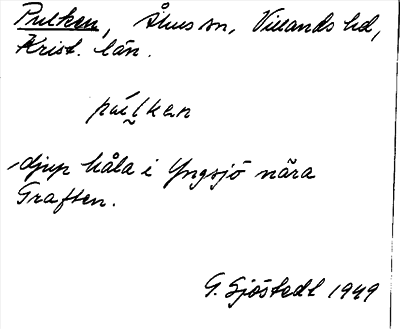 Pulken, Åhus sn, Villands hd,
Krist. län.
pulken
djup håla i Yngsjö nära
Graften.
G. Sjöstedt 1949